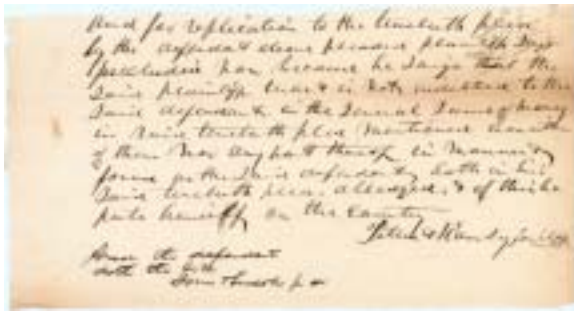 And for replication to the twelvth plea
by the defendant above pleaded plaintiff says
precludi non because he says that the
said plaintiff was & is not indebted to the
said defendant in the several sums of money
in said twelvth plea mentioned
of them nor any part thereof in manner &
form as the said defendant hath in his
said twelvth plea alledged, & of this he
puts himself on the country
for plff
And the defendant
doth the like